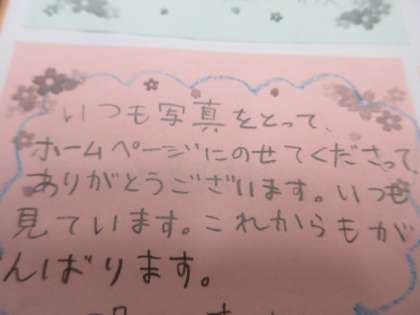 いつも写真をとって、
ホームページにのせてくださって
ありがとうございます。いつも
見ています。これからもが
んばります。